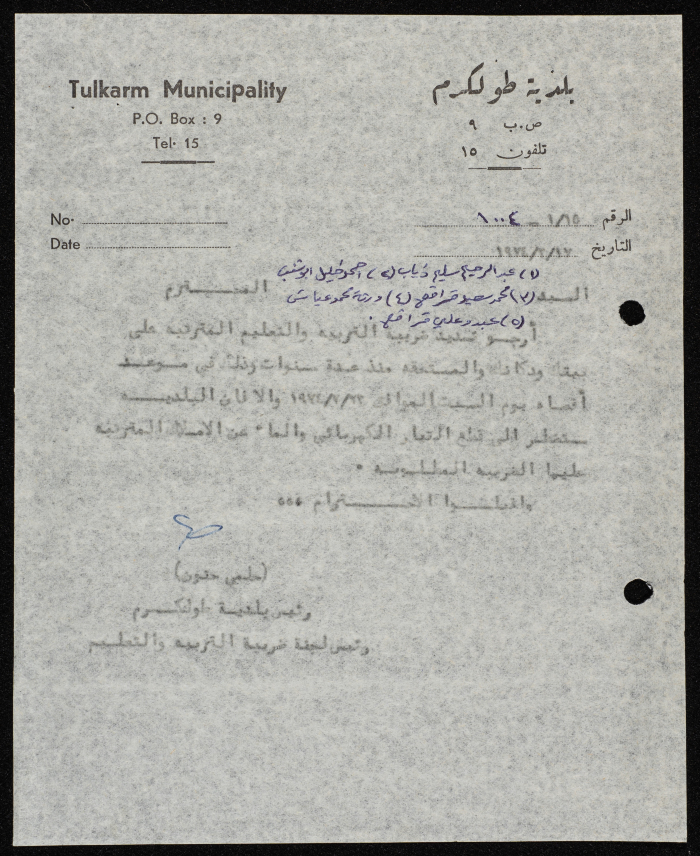 Tulkarm Municipality
P.O. Box : 9
Tel· 15
بلدية طولكرم
ص.ب ٩
تلفون ١٥
No·
Date
الرقم ١/١٥ – ١٠٠٤
التاريخ ١٩٧٤/٢/١٧
(١) عبدالرحيم سليم ذياب (٢) احمد خليل ابوشنب
السيد المحتــــرم
(٣) محمد سعيد قراقع (٤) ورثة محمد عياش
(٥) عبد وعلي قراقع .
أرجــو تسديد ضريبة التربيه والتعليم المترتبه على
والمستحقه منذ عدة سنوات وذلك في مـوعــد
أقصاه يوم السبت الموافق ١٩٧٤/٢/٢٣ والا فان البلديــه
ستضطر الى قطع التيار الكهربائي والماء عن الاملاك المترتبه
عليها الضريبه المطلـوبـه .
واقبلـــوا الاحـــترام ،،،
(حلمي حنون)
رئيس بلديــة طولكــرم
ورئيس لجنة ضريبة التربيه والتعليــم